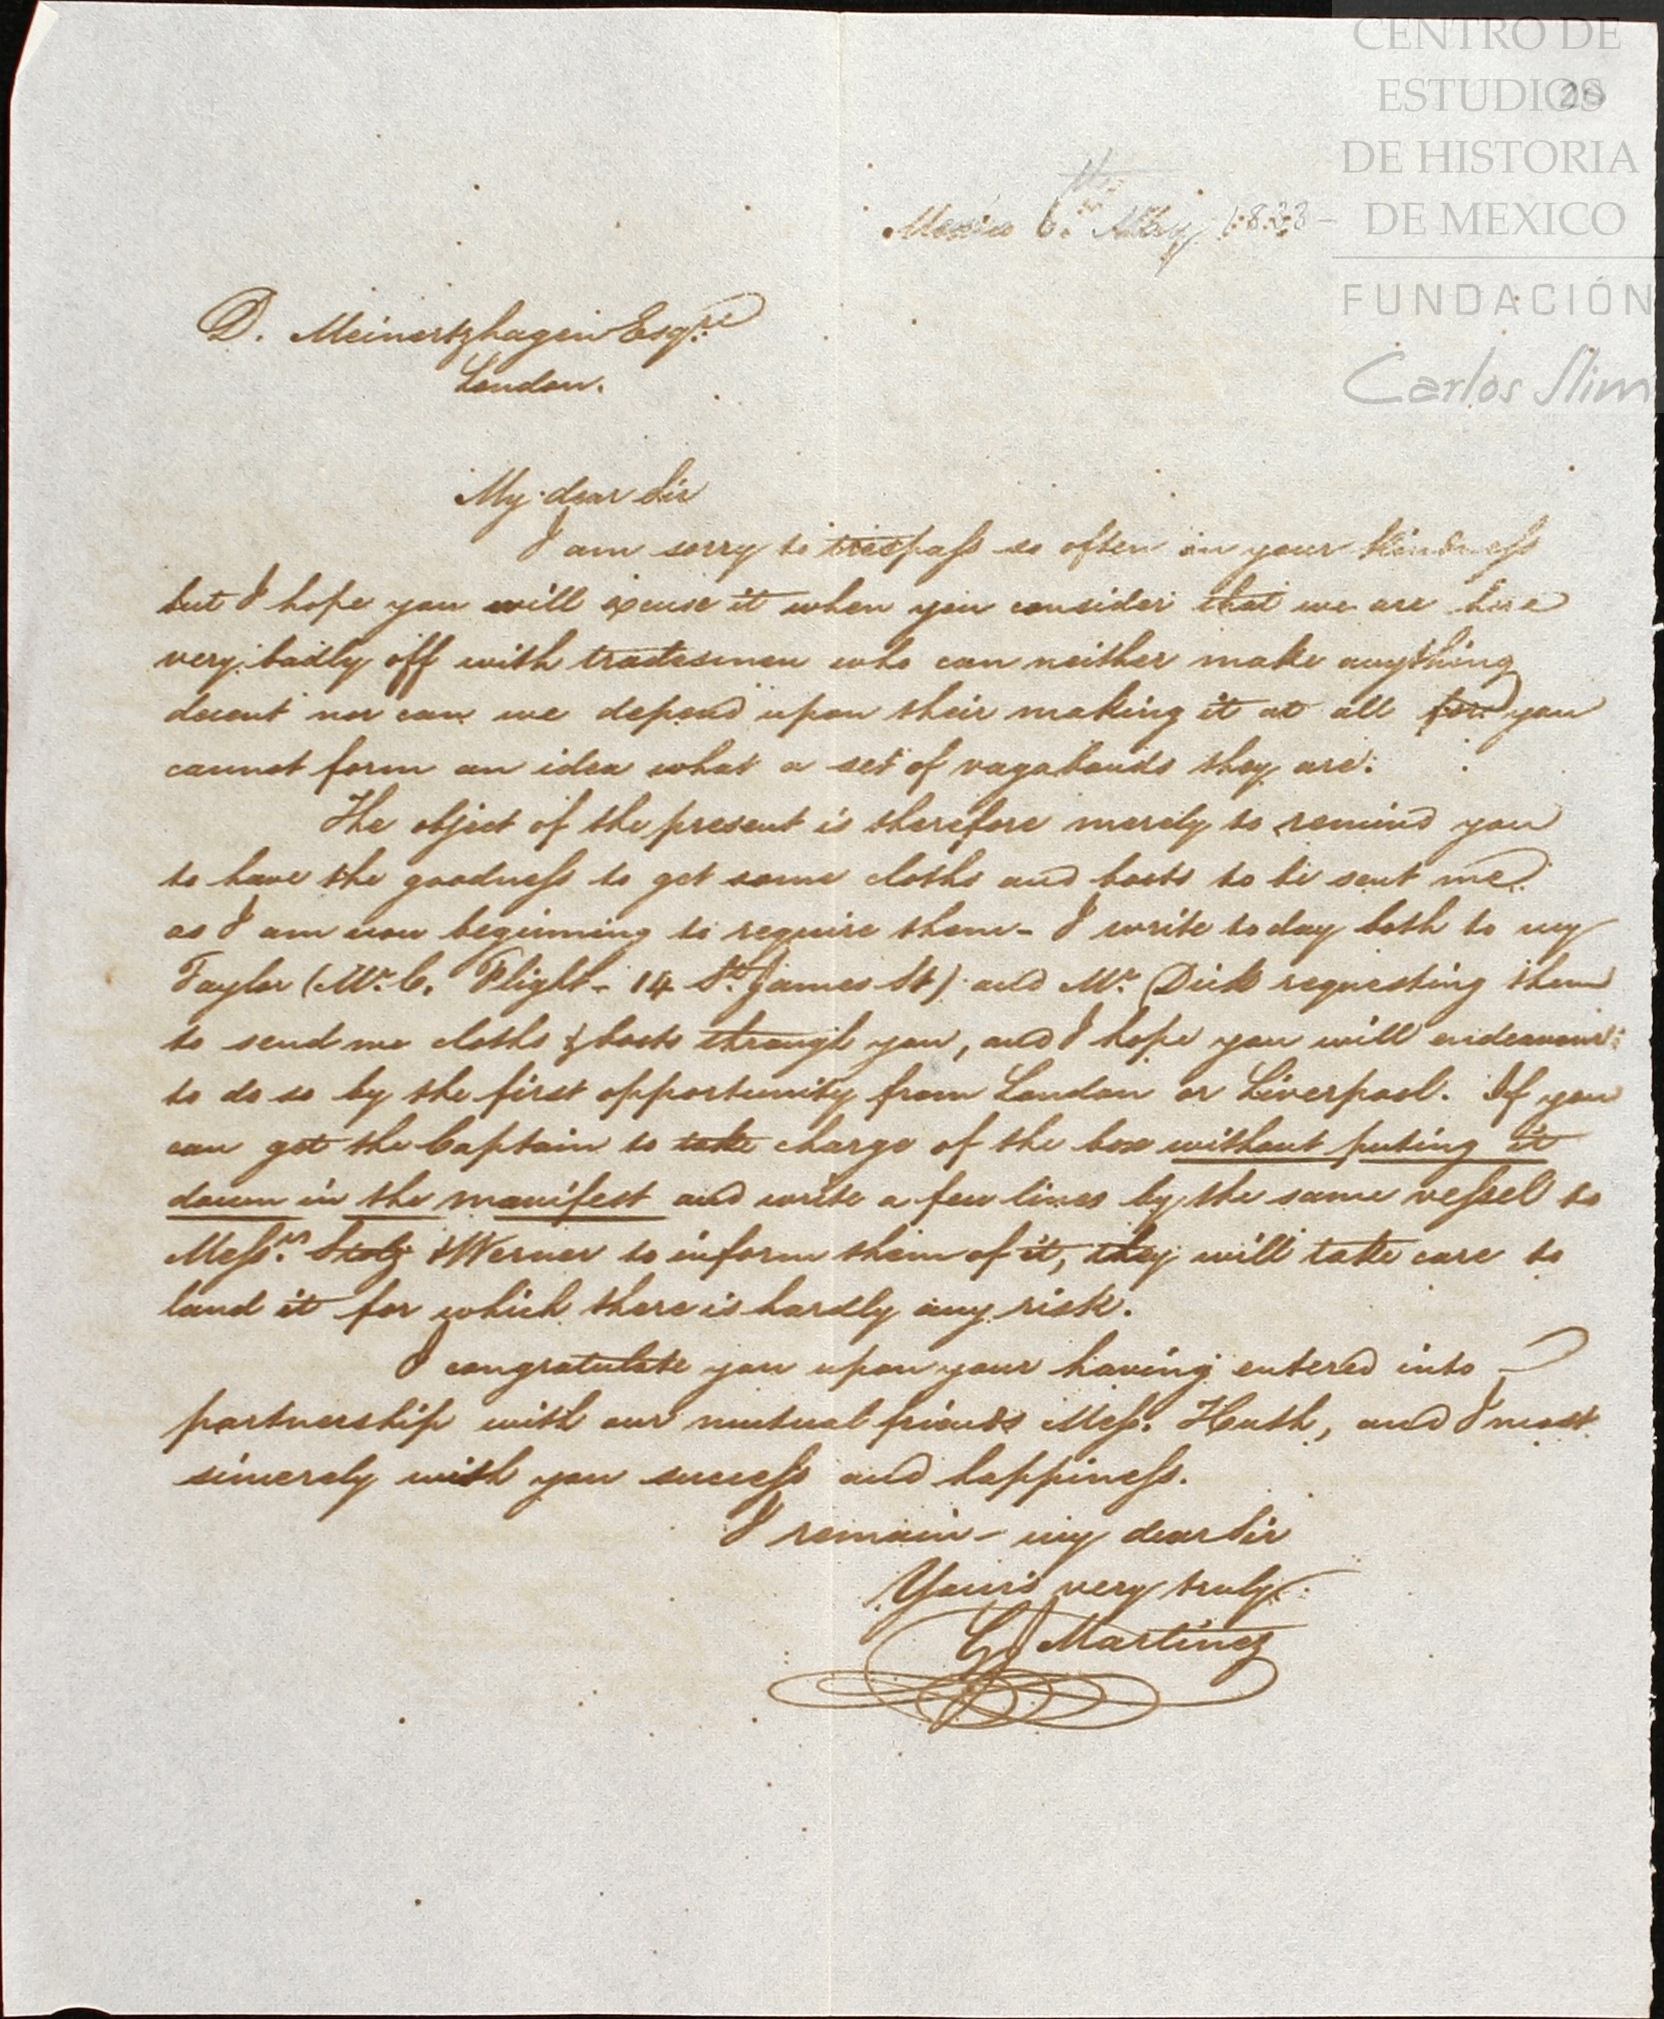 CENTRO DE
ESTUDIOS
DE HISTORIA
DE MEXICO
FUNDACIÓN
Carlos Slim
Mexico 6th May 1833-
D. Meinertzhagen Esqre
London.
My dear Sir
I am sorry to trespass so often on your kindness
but I hope you will excuse it when you consider that we are here
very badly off with tradesmen who can neither make anything
decent nor can we depend upon their making it at all for you
cannot form an idea what a set of vagabonds they are.
The object of the present is therefore merely to remind you
to have the goodness to get some cloths and boots to be sent me
as I am now beginning to require them - I write today both to my
Taylor (Mr. C. Flight - 14 St. James St) and Mr. Dick requesting them
to send me cloths & boots through you, and I hope you will endeavour
to do so by the first opportunity from London or Liverpool. If you
can get the Captain to take charge of the box without puting it
down in the manifest and write a few lines by the same vessel to
Messrs. Stolz & Werner to inform them of it, they will take care to
land it for which there is hardly any risk.
I congratulate you upon your having entered into
partnership with our mutual friends Mess. Huth, and I most
sincerely wish you success and happiness.
I remain - my dear Sir
Yours very truly
G J Martinez